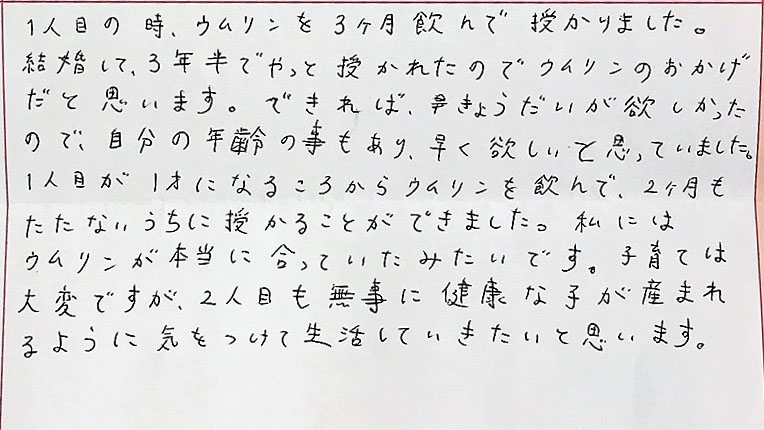 1人目の時、ウムリンを3ヶ月飲んで授かりました。
結婚して、3年半でやっと授かれたのでウムリンのおかげ
だと思います。できれば、早きょうだいが欲しかった
ので、自分の年齢の事もあり、早く欲しいと思っていました。
1人目が1才になるころからウムリンを飲んで、2ヶ月も
たたないうちに授かることができました。私には
ウムリンが本当に合っていたみたいです。子育ては
大変ですが、2人目も無事に健康な子が産まれ
るように気をつけて生活していきたいと思います。